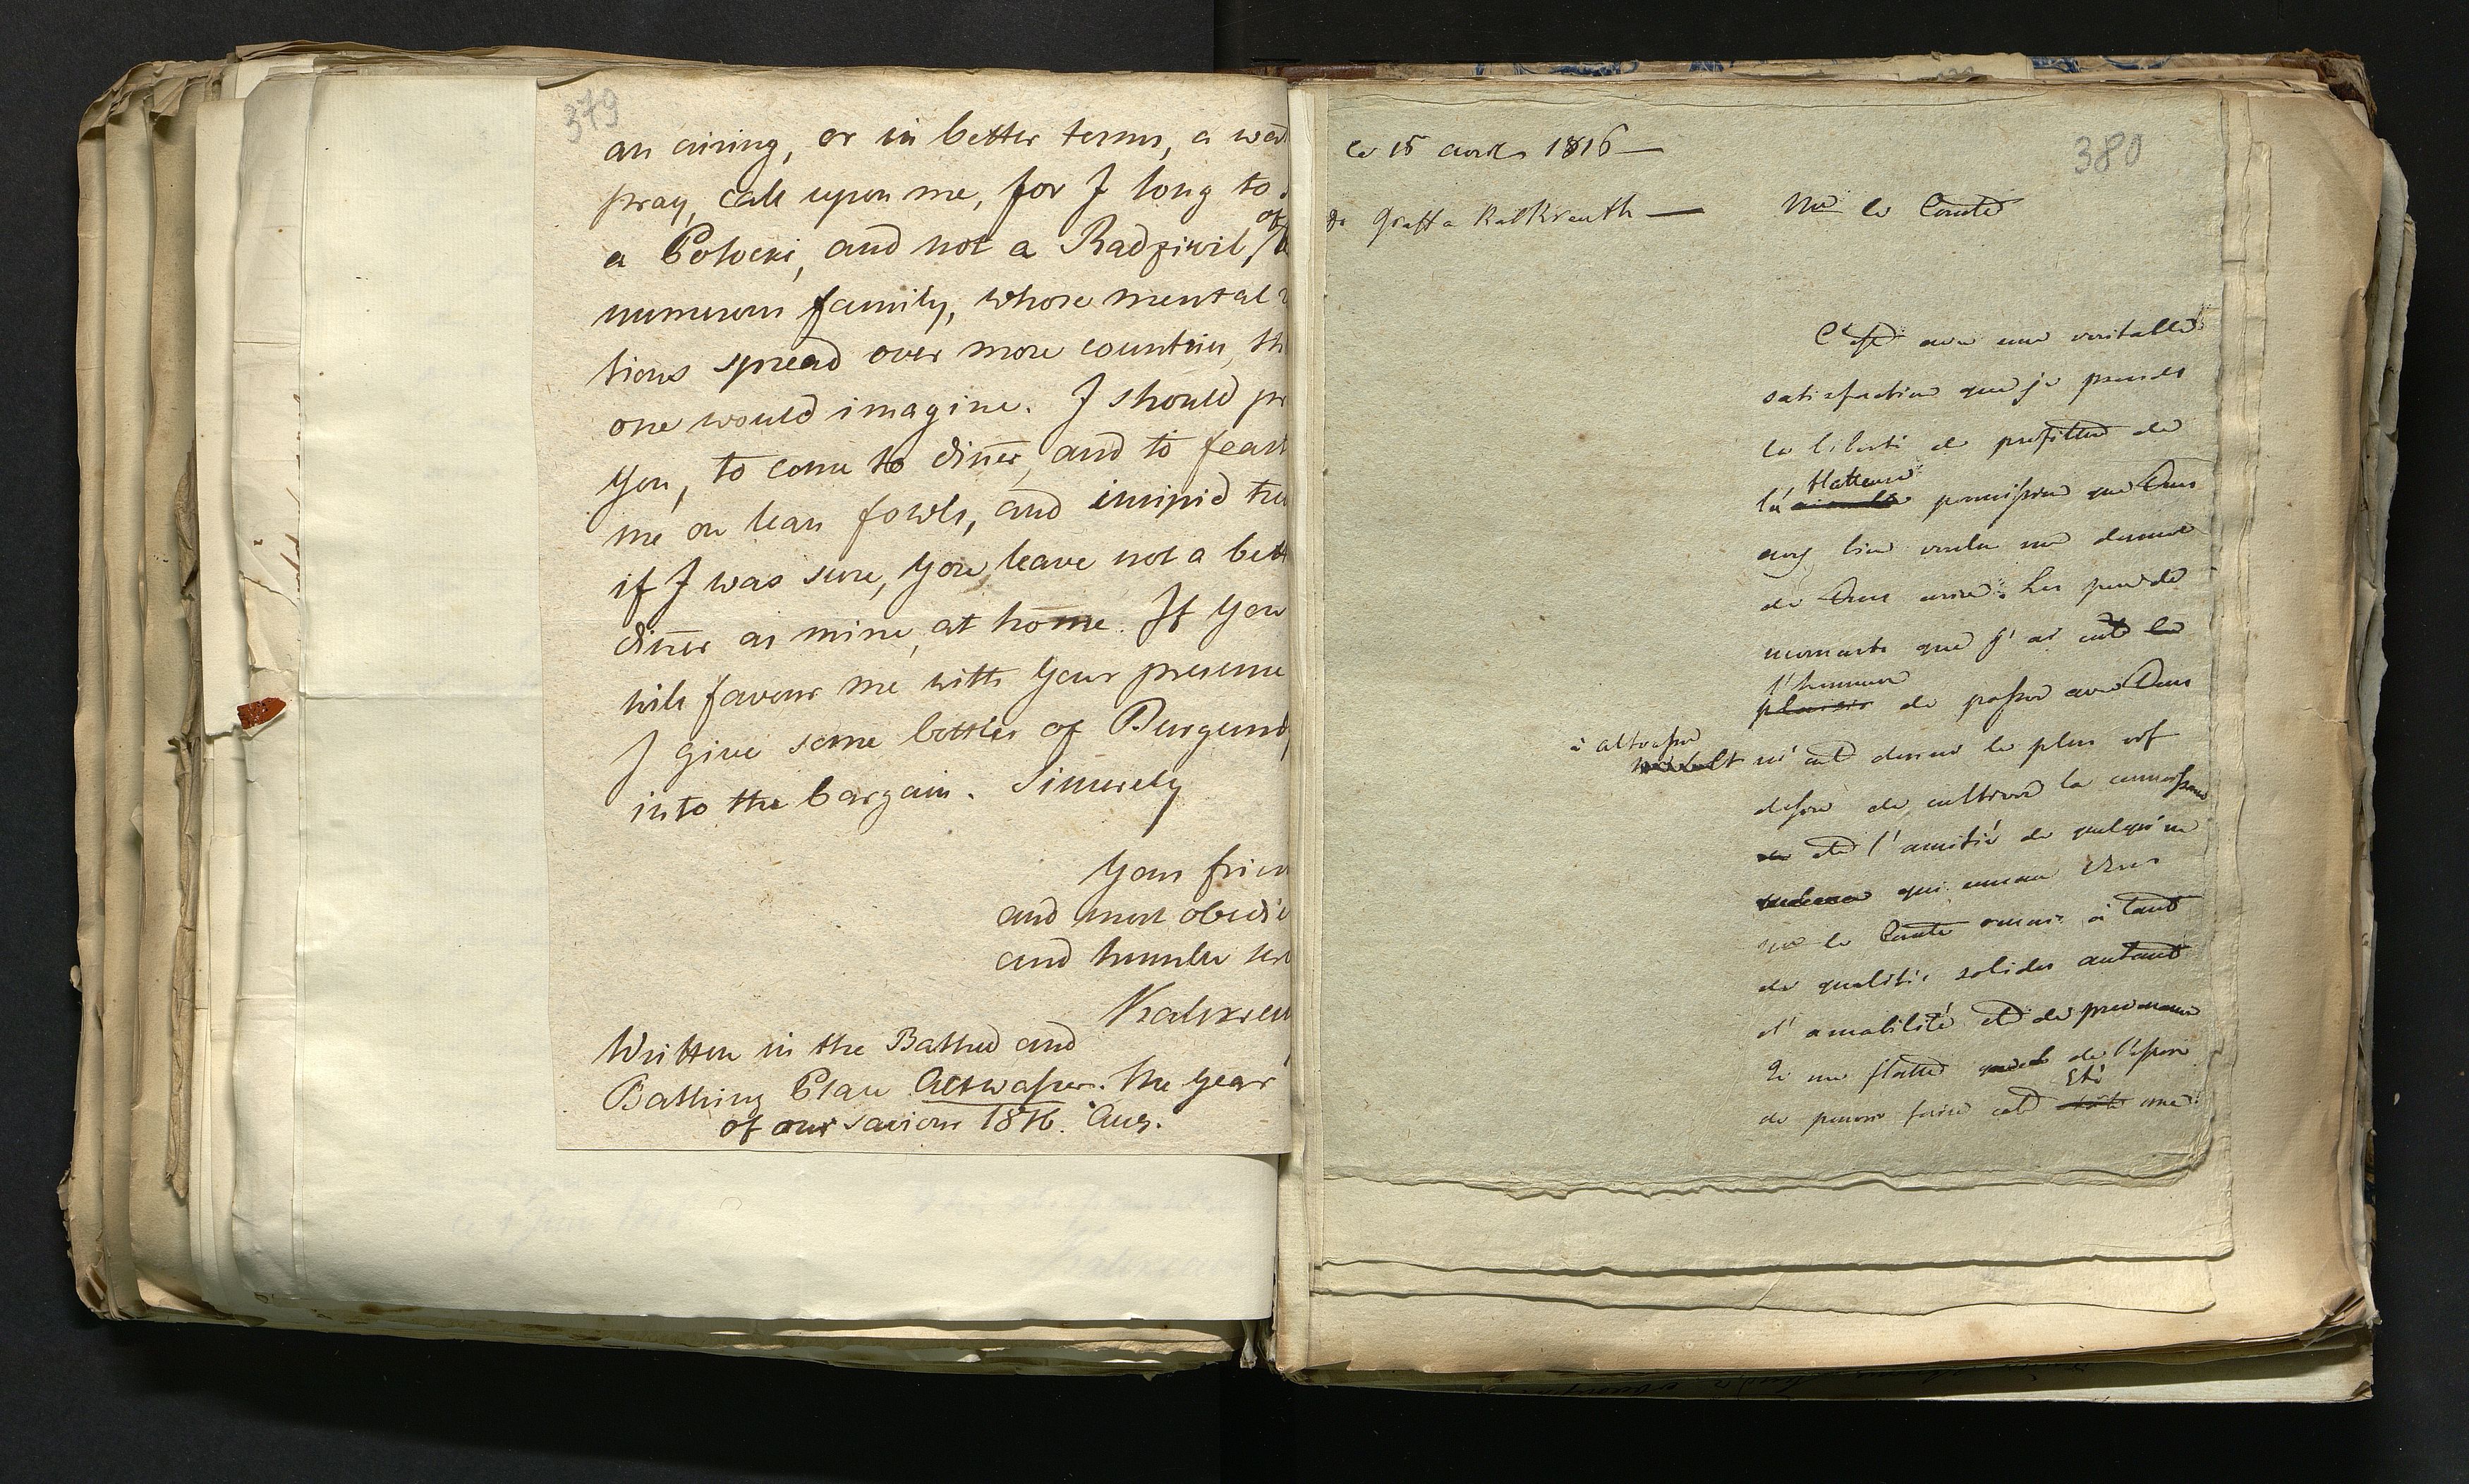 379
an airing, or in better terms, a wa
pray, call upon me, for I long to
a Potocki, and not a Radziwil, of
numerous family, whose mental
tions spread over more countries, th
one would imagine. I should pr
you, to come to diner, and to feast
me on lean fowls, and insipid tru
if I was sure, you leave not a bett
diner as mine, at home. If you
will favour me with your presence
I give some bottles of Burgundy
into the bargain. Sincerely
Your frien
and most obedie
and humble ser
Kalkreu
Written in the Bathed and
Bathing Place Altwasser. The year
of our saviour 1816. Aug.
380
le 15 1816 —
Graffa Kalkreuth — Mr le Comte
C'est avec une veritable
satisfaction que je prends
la liberté de profiter de
flatteuse
la permission que Vous
avez bien voulu me donner
de Vous ecrire. Les peu de
moments que j'ai eut le
l'honneur
plaisir de passer avec Vous
à altvasser
m'ont donné le plus vif
desire de cultiver la connoissance
et l'amitié de quelqu'un
qui comme Vous
Mr le Comte à tant
de qualités solides autant
d'amabilité et de prevenance
Je me flatte de l'espoir
Eté
de pouvoir faire cet une